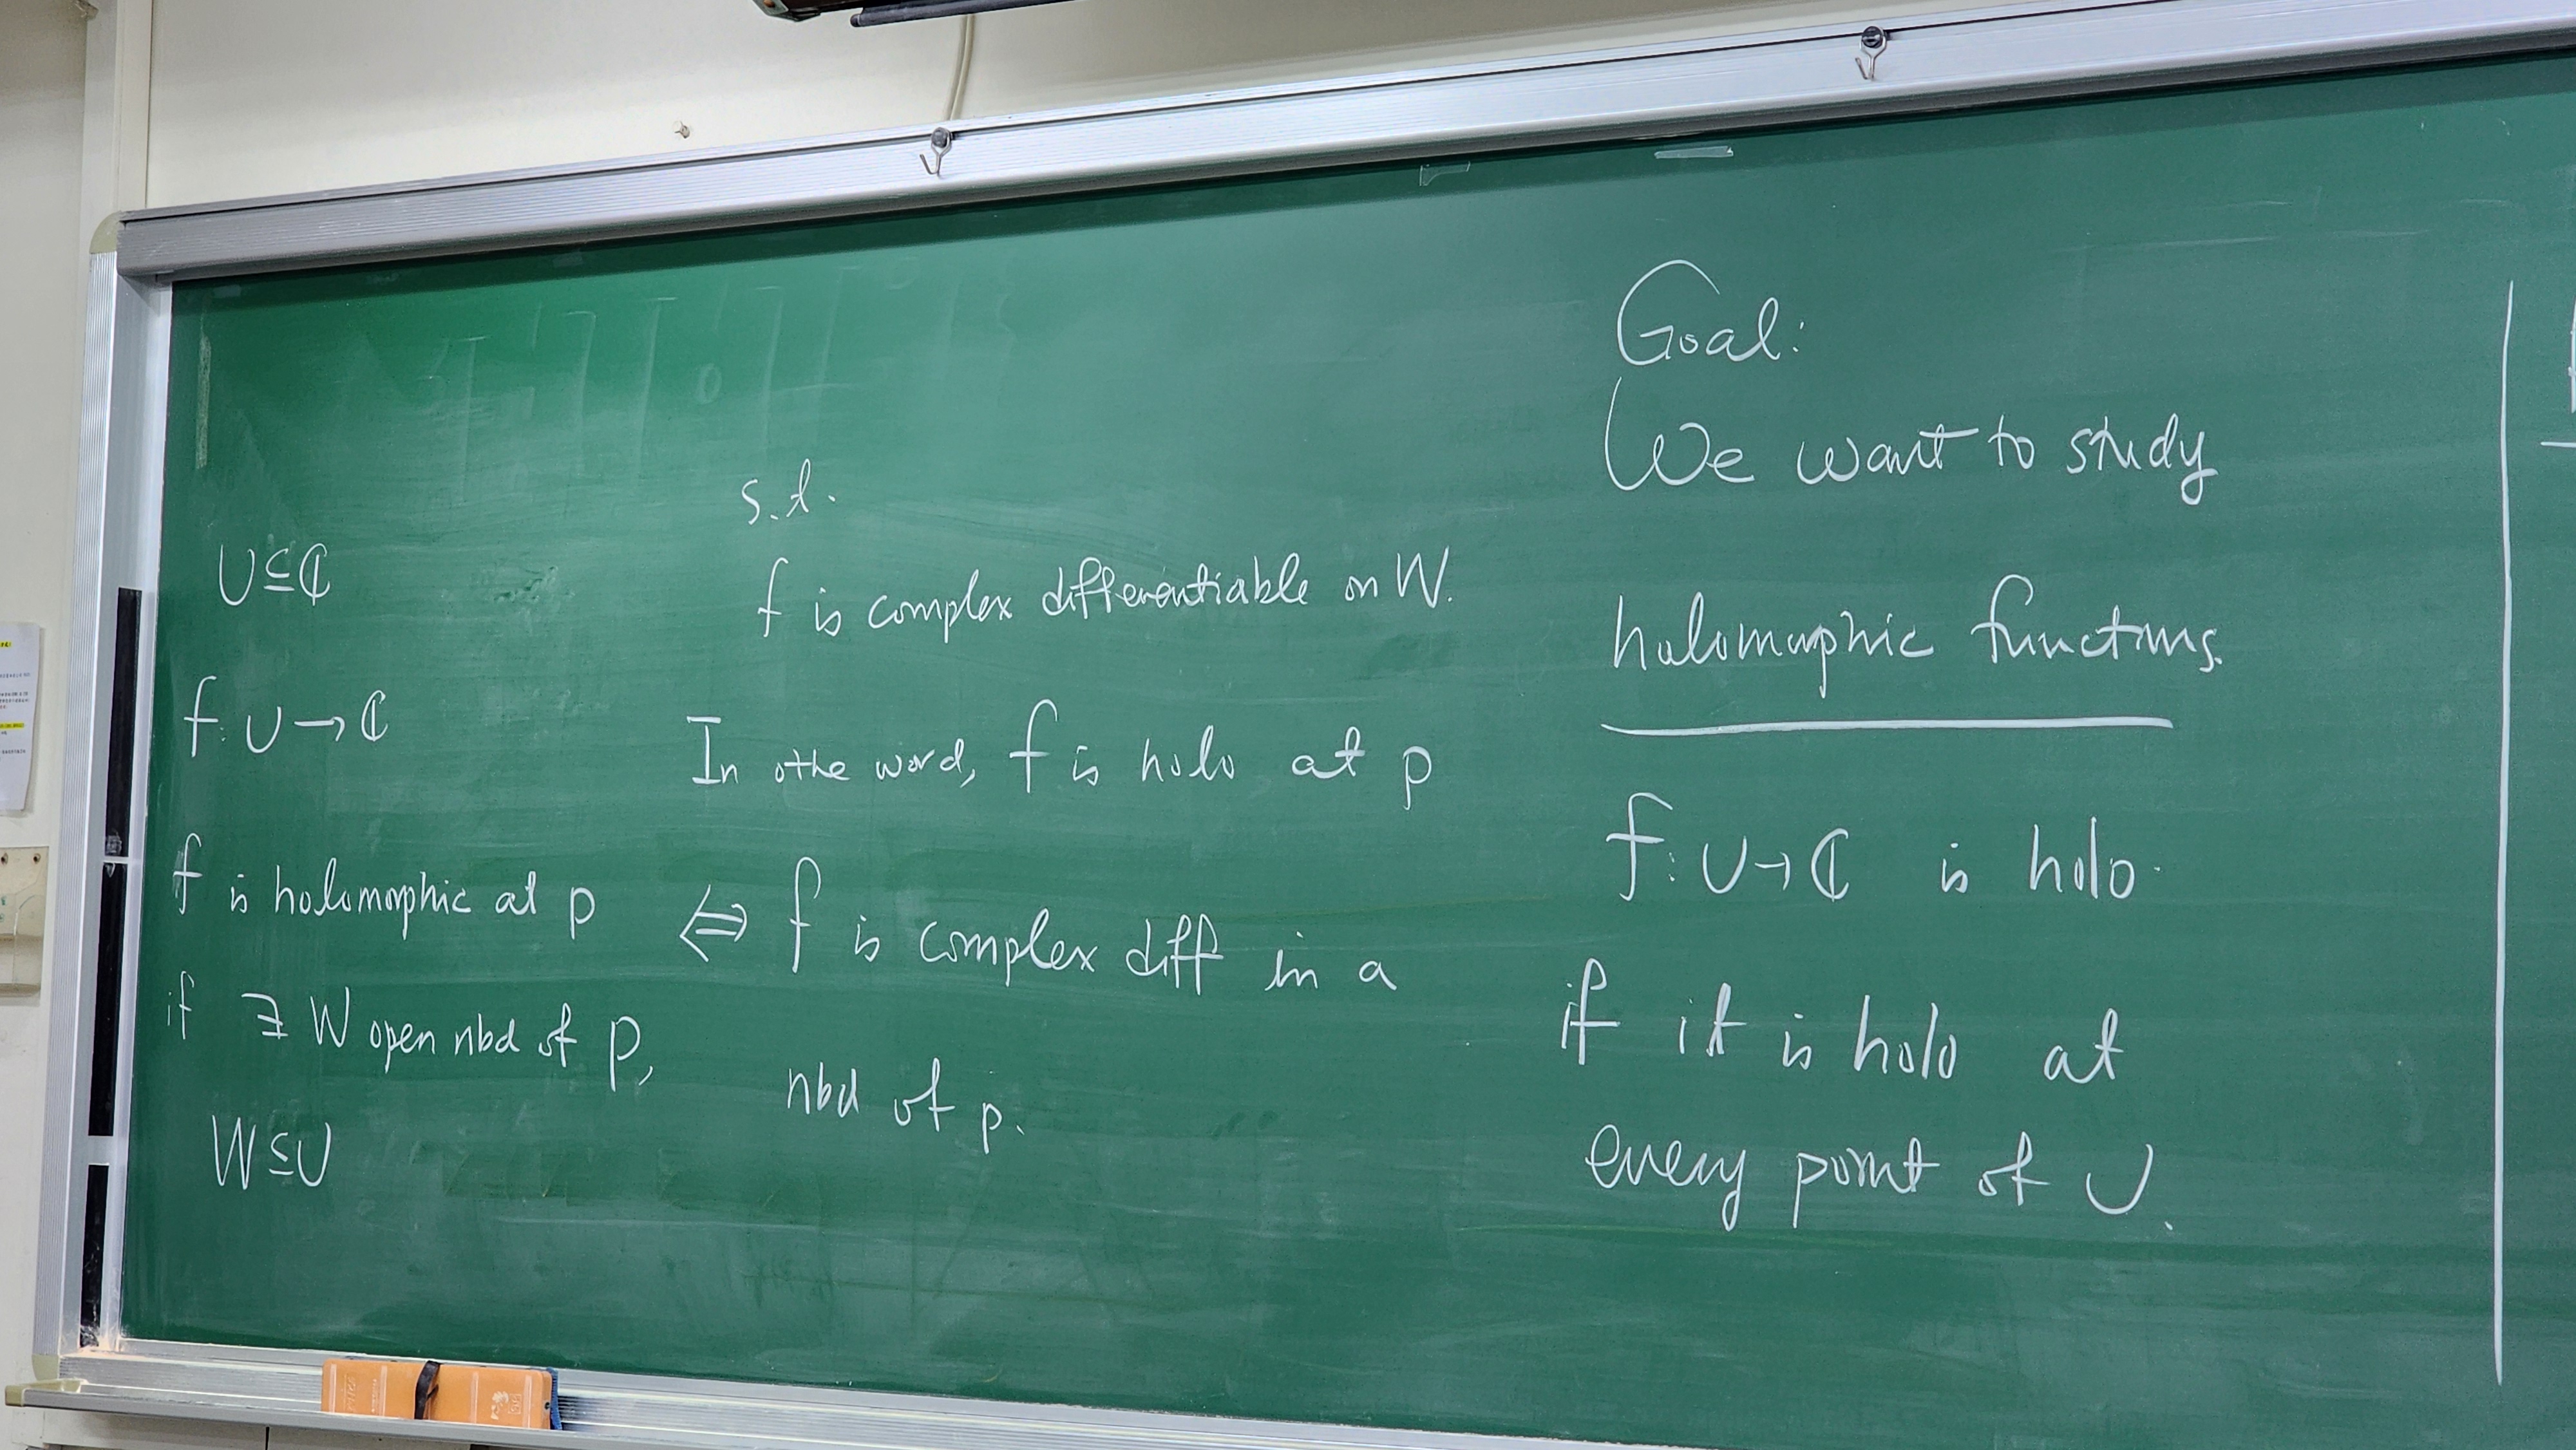 U⊆ℂ
f: U→ℂ
f is holomorphic at p
if ∃ W open nbd of p,
W⊆U
s.t.
f is complex differentiable on W.
In othe word, f is holo at p
⇔ f is complex diff in a
nbd of p.
Goal:
We want to study
holomorphic functions.
f: U→ℂ is holo.
if it is holo at
every point of U.